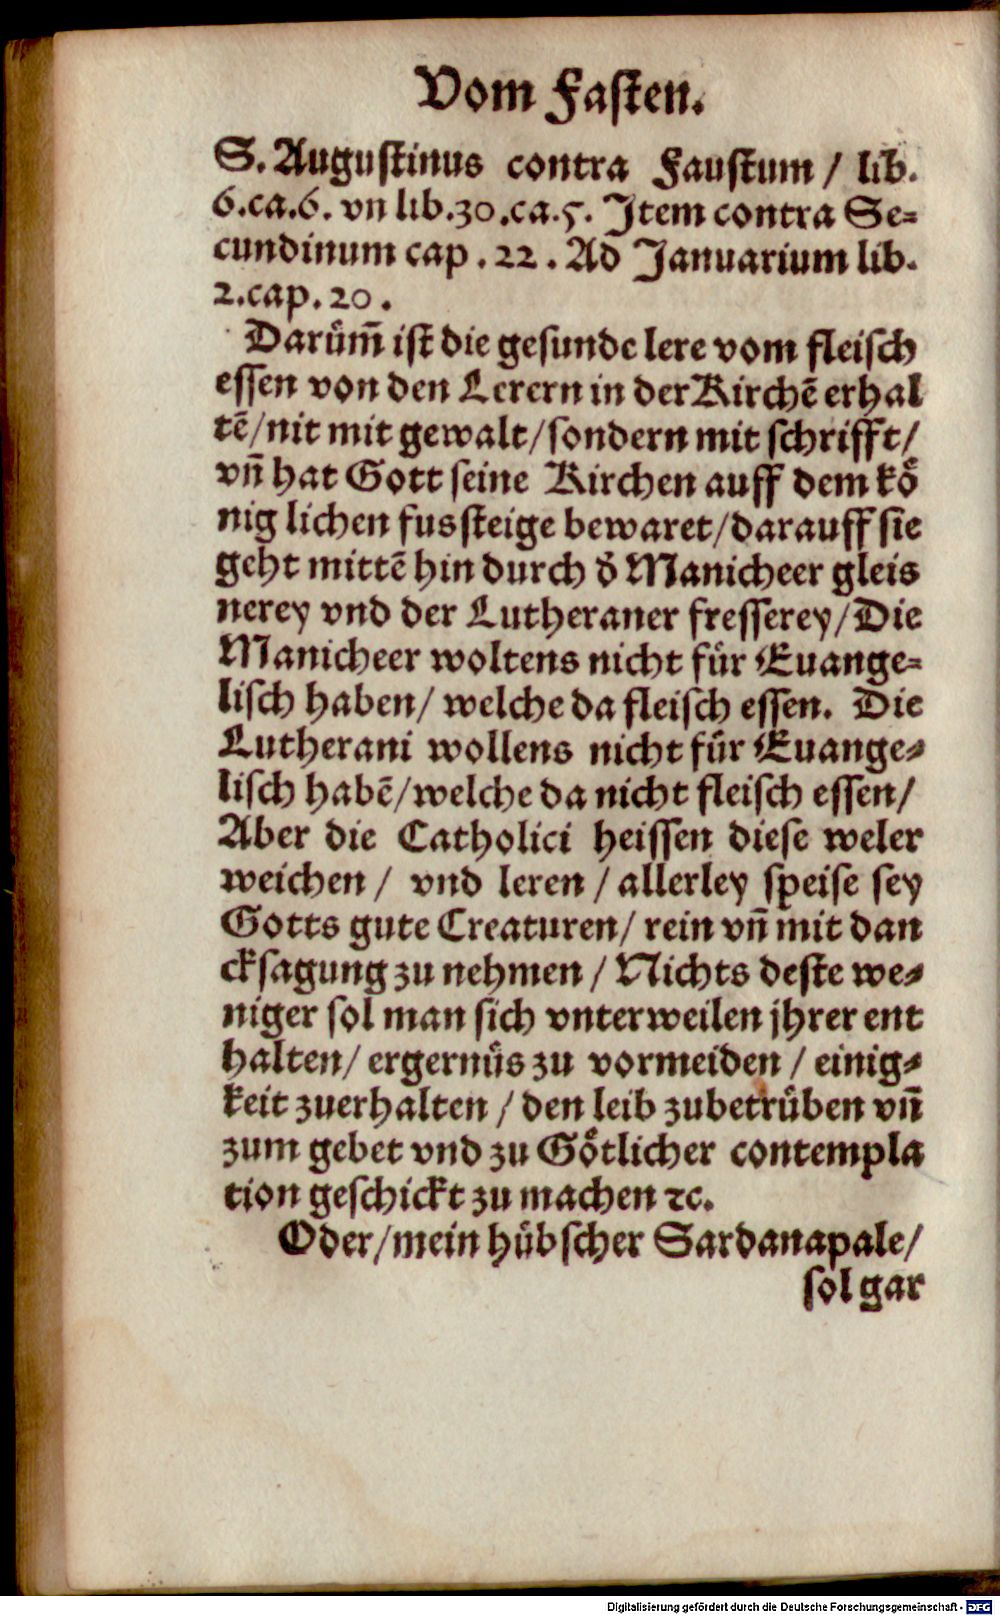 Vom Fasten.
S. Augustinus contra Faustum / lib.
6.ca.6. vn lib.30.ca.5. Item contra Se=
cundinum cap. 22. Ad Januarium lib.
2.cap. 20.
Darům̃ ist die gesunde lere vom fleisch
essen von den Lerern in der Kirchẽ erhal
tẽ/nit mit gewalt/sondern mit schrifft/
vñ hat Gott seine Kirchen auff dem kö
nig lichen fussteige bewaret/darauff sie
geht mittẽ hin durch d̕ Manicheer gleis
nerey vnd der Lutheraner fresserey/Die
Manicheer woltens nicht für Euange=
lisch haben/ welche da fleisch essen. Die
Lutherani wollens nicht für Euange=
lisch habẽ/welche da nicht fleisch essen/
Aber die Catholici heissen diese weler
weichen / vnd leren / allerley speise sey
Gotts gute Creaturen/ rein vñ mit dan
cksagung zu nehmen / Nichts deste we=
niger sol man sich vnterweilen jhrer ent
halten/ ergernüs zu vormeiden / einig=
keit zuerhalten / den leib zubetrüben vñ
zum gebet vnd zu Götlicher contempla
tion geschickt zu machen ꝛc.
Oder/mein hübscher Sardanapale/
sol gar
Digitalisierung gefördert durch die Deutsche Forschungsgemeinschaft - DFG